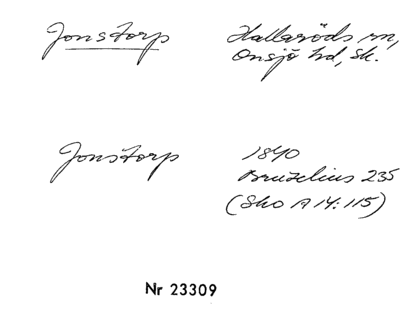 Jonstorp
Hallaröds sn,
Onsjö hd, Sk.
Jonstorp
1840
Bruzelius 235
(Sko A 14:115)
Nr 23309